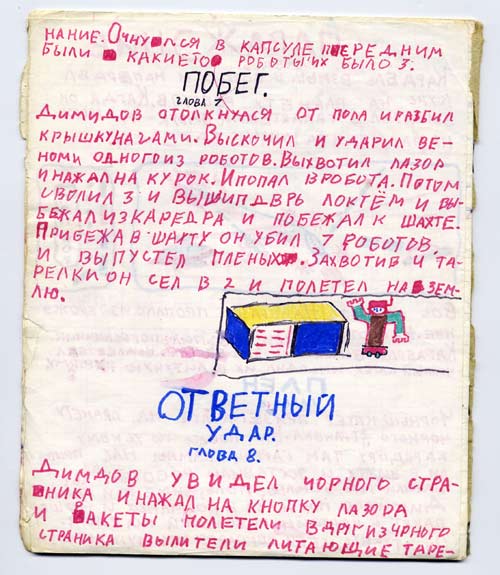 НАНИЕ. ОЧНУЛСЯ В КАПСУЛЕ ПЕРЕД НИМ
БЫЛИ КАКИЕТО РОБОТЫ ИХ БЫЛО 3.
ПОБЕГ.
ГЛОВА 7
ДИМИДОВ ОТОЛКНУЛСЯ ОТ ПОЛА И РАЗБИЛ
КРЫШКУ НАГАМИ. ВЫСКОЧИЛ И УДАРИЛ ВЕ-
НОМИ ОДНОГО ИЗ РОБОТОВ. ВЫХВОТИЛ ЛАЗОР
И НАЖАЛ НА КУРОК. И ПОПАЛ В РОБОТА. ПОТОМ
СВОЛИЛ 3 И ВЫШИП ДВРЬ ЛОКТЁМ И ВЫ-
БЕЖАЛ ИЗ КАРЕДРА И ПОБЕЖАЛ К ШАХТЕ.
ПРИБЕЖАВ ШАХТУ ОН УБИЛ 7 РОБОТОВ.
И ВЫПУСТЕЛ ПЛЕНЫХ. ЗАХВОТИВ 4 ТА-
РЕЛКИ ОН СЕЛ В 2 И ПОЛЕТЕЛ НА ЗЕМ-
ЛЮ.
ОТВЕТНЫЙ
УДАР.
ГЛОВА 8.
ДИМДОВ УВИДЕЛ ЧОРНОГО СТРА-
НИКА И НАЖАЛ НА КНОПКУ ЛАЗОРА
И РАКЕТЫ ПОЛЕТЕЛИ ВДРГ ИЗ ЧРНОГО
СТРАНИКА ВЫЛИТЕЛИ ЛИТАЮЩИЕ ТАРЕ-